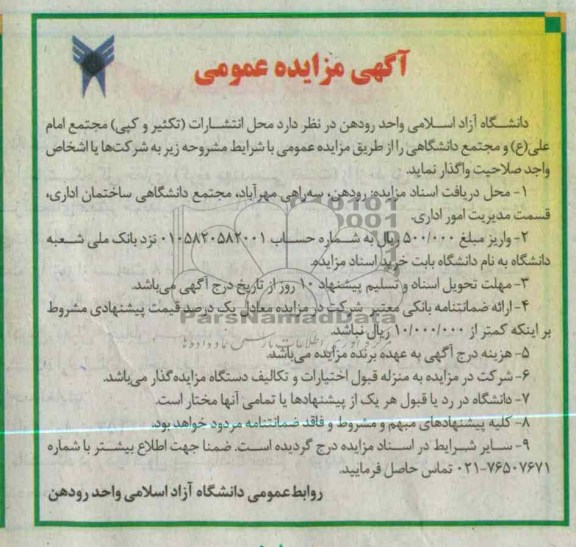 آگهی مزایده عمومی
دانشگاه آزاد اسلامی واحد رودهن در نظر دارد محل انتشارات (تکثیر و کپی) مجتمع امام
علی(ع) و مجتمع دانشگاهی را از طریق مزایده عمومی با شرایط مشروحه زیر به شرکت‌ها یا اشخاص
واجد صلاحیت واگذار نماید.
۱- محل دریافت اسناد مزایده: رودهن، سه‌راهی مهرآباد، مجتمع دانشگاهی ساختمان اداری،
قسمت مدیریت امور اداری.
۲- واریز مبلغ ۵۰۰/۰۰۰ ریال به شماره حساب ۰۱۰۵۸۲۰۵۸۲۰۰۱ نزد بانک ملی شعبه
دانشگاه به نام دانشگاه بابت خرید اسناد مزایده.
۳- مهلت تحویل اسناد و تسلیم پیشنهاد ۱۰ روز از تاریخ درج آگهی می‌باشد.
۴- ارائه ضمانتنامه بانکی معتبر شرکت در مزایده معادل یک درصد قیمت پیشنهادی مشروط
بر اینکه کمتر از ۱۰/۰۰۰/۰۰۰ ریال نباشد.
ParsNamadData
۵- هزینه درج آگهی به عهده برنده مزایده می‌باشد.
۶- شرکت در مزایده به منزله قبول اختیارات و تکالیف دستگاه مزایده‌گذار می‌باشد.
۷- دانشگاه در رد یا قبول هر یک از پیشنهادها یا تمامی آنها مختار است.
۸- کلیه پیشنهادهای مبهم و مشروط و فاقد ضمانتنامه مردود خواهد بود.
۹- سایر شرایط در اسناد مزایده درج گردیده است. ضمنا جهت اطلاع بیشتر با شماره
۰۲۱-۷۶۵۰۷۶۷۱ تماس حاصل فرمایید.
روابط‌عمومی دانشگاه آزاد اسلامی واحد رودهن